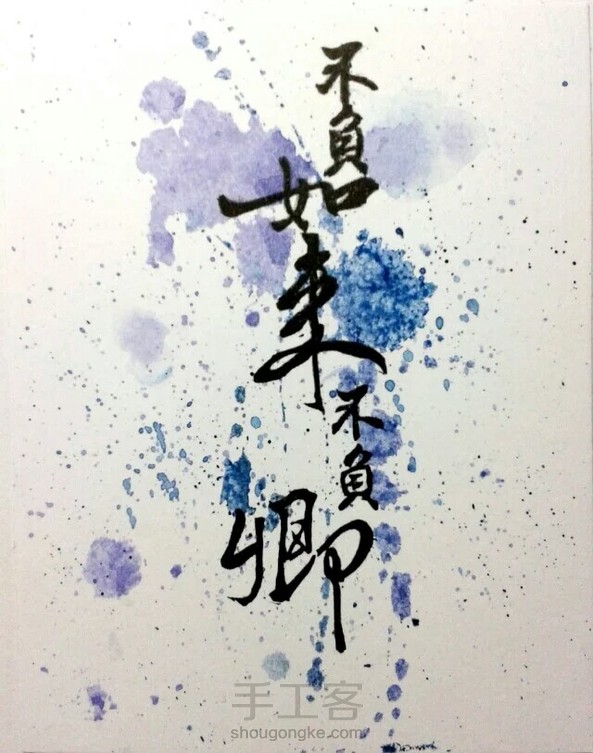 不负如来不负卿
手工客
shougongke.com